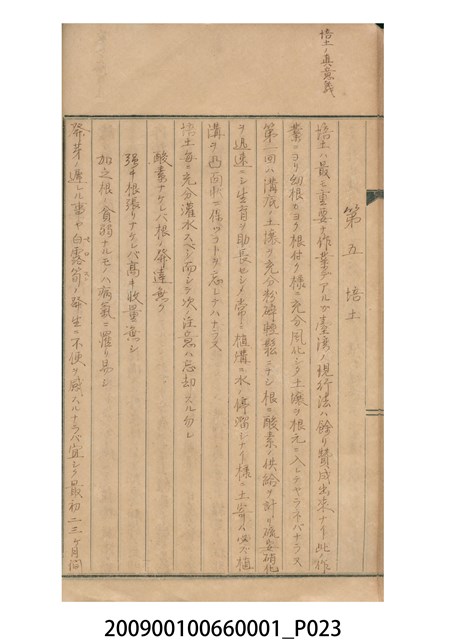 培土ノ真意義
第五 培土
培土ハ最モ重要ナ作業デアルガ臺湾ノ現行法ハ餘リ賛成出来ナイ此ノ作
業ニヨリ幼根モヨク根付ク様ニ充分風化シタ土壌ヲ根元ニ入レテヤラネバナラヌ
第一回ハ溝底ノ土壌ヲ充分粉砕軽鬆ニナシ根ニ酸素ノ供給ヲ計リ硫安硝化
ヲ迅速ニシ生育ヲ助長セシメ常ニ植溝ニ水ノ停溜シナイ様ニ土寄ハ必ズ植
溝ヲ凹向状ニ保ツコトヲ忘レテハナラヌ
培土毎ニ充分灌水スベシ而シテ次ノ注意ハ忘却スル勿レ
酸素ナケレバ根ノ発達無ク
強キ根張リナケレバ高キ收量無シ
加之根ノ貧弱ナルモノハ病氣ニ罹リ易シ
発芽ノ遅レル事ヤ白露筍ノ発生ニ不便ヲ感ズルナラバ宜シク最初二三ヶ月間
200900100660001_P023